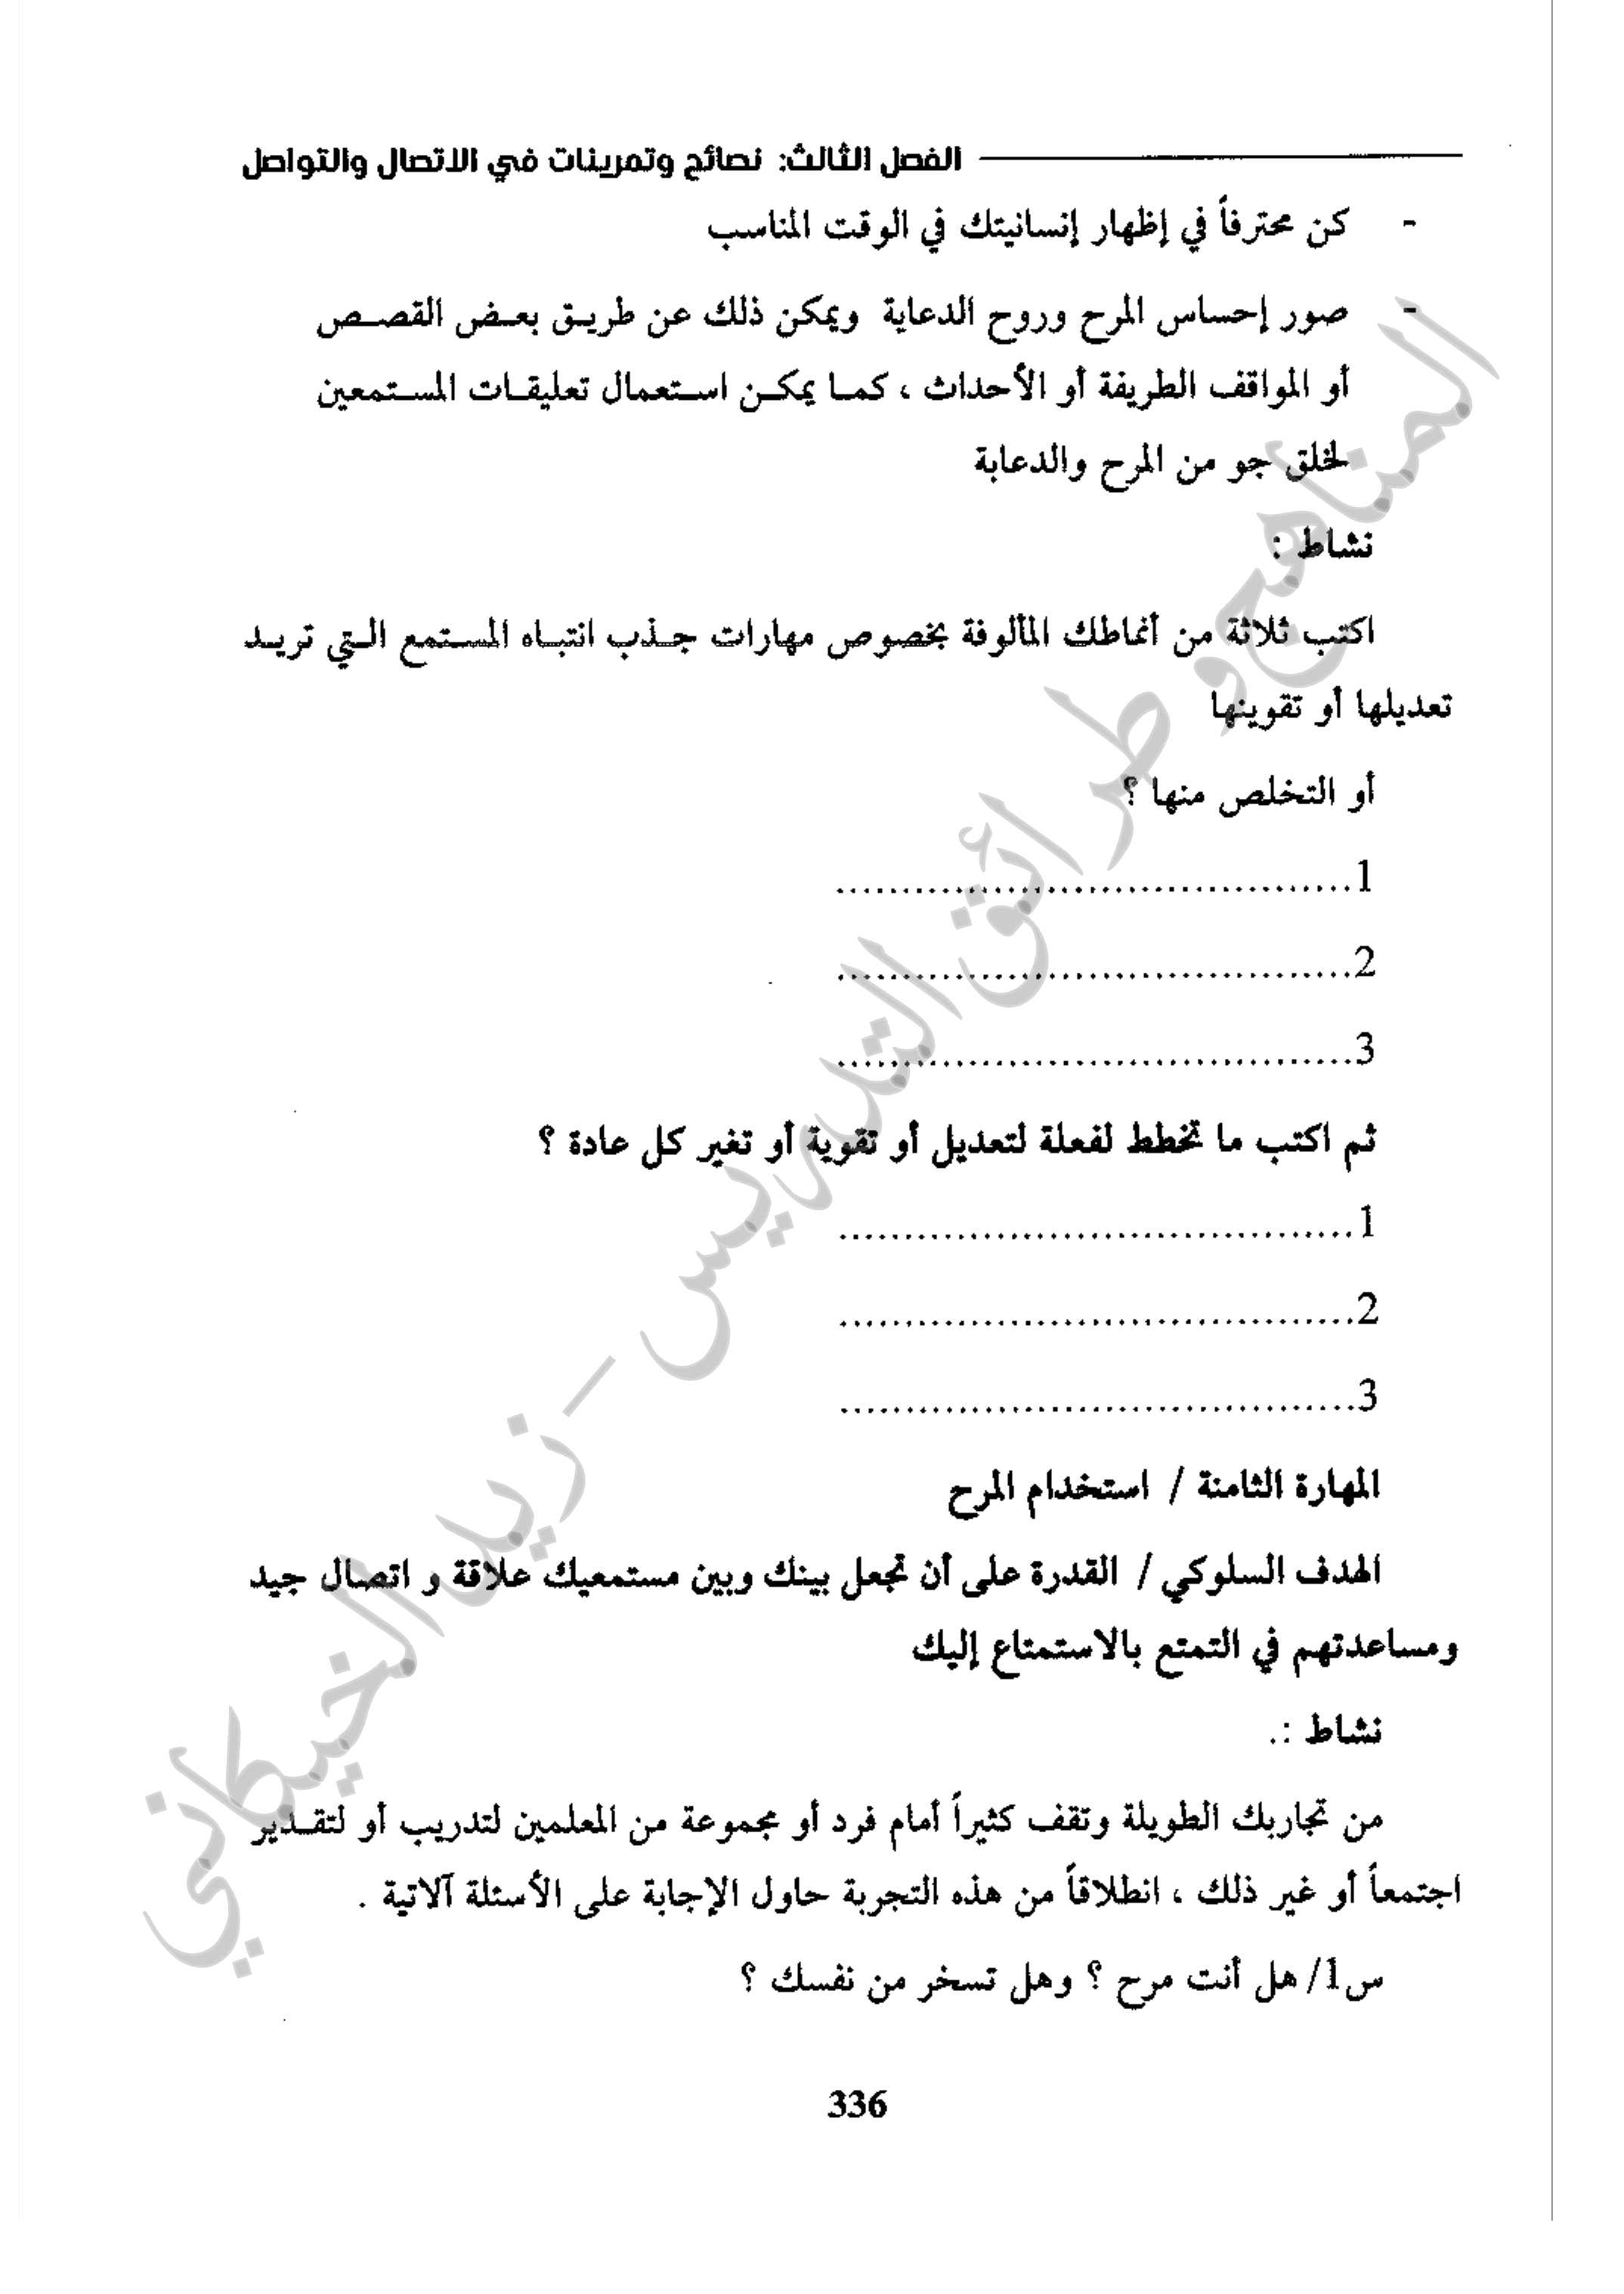 الفصل الثالث: نصائح وتمرينات في الاتصال والتواصل
- كن محترفاً في إظهار إنسانيتك في الوقت المناسب
- صور إحساس المرح وروح الدعاية ويمكن ذلك عن طريق بعض القصص
أو المواقف الطريفة أو الأحداث ، كما يمكن استعمال تعليقات المستمعين
لخلق جو من المرح والدعابة
نشاط :
اكتب ثلاثة من أنماطك المألوفة بخصوص مهارات جذب انتباه المستمع التي تريد
تعديلها أو تقوينها
أو التخلص منها ؟
1.......................................
2.......................................
3.......................................
ثم اكتب ما تخطط لفعلة لتعديل أو تقوية أو تغير كل عادة ؟
1.......................................
2.......................................
3.......................................
المهارة الثامنة / استخدام المرح
الهدف السلوكي / القدرة على أن تجعل بينك وبين مستمعيك علاقة و اتصال جيد
ومساعدتهم في التمتع بالاستمتاع إليك
نشاط :.
من تجاربك الطويلة وتقف كثيراً أمام فرد أو مجموعة من المعلمين لتدريب أو لتقدير
اجتمعاً أو غير ذلك ، انطلاقاً من هذه التجربة حاول الإجابة على الأسئلة آلاتية .
س1/ هل أنت مرح ؟ وهل تسخر من نفسك ؟
336
المناهج و طرائق التدريس - زيد الخيكاني